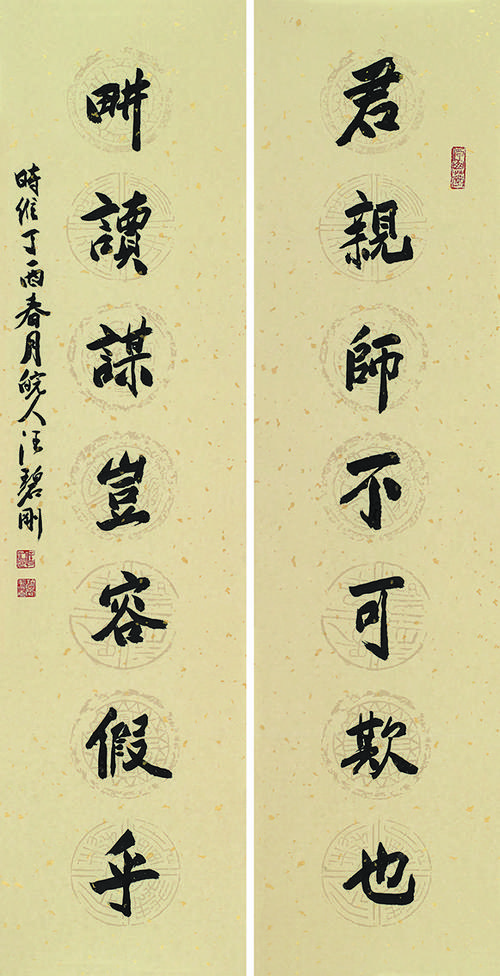 君親師不可欺也
畊讀謀豈容假乎
時維丁酉春月皖人汪碧剛